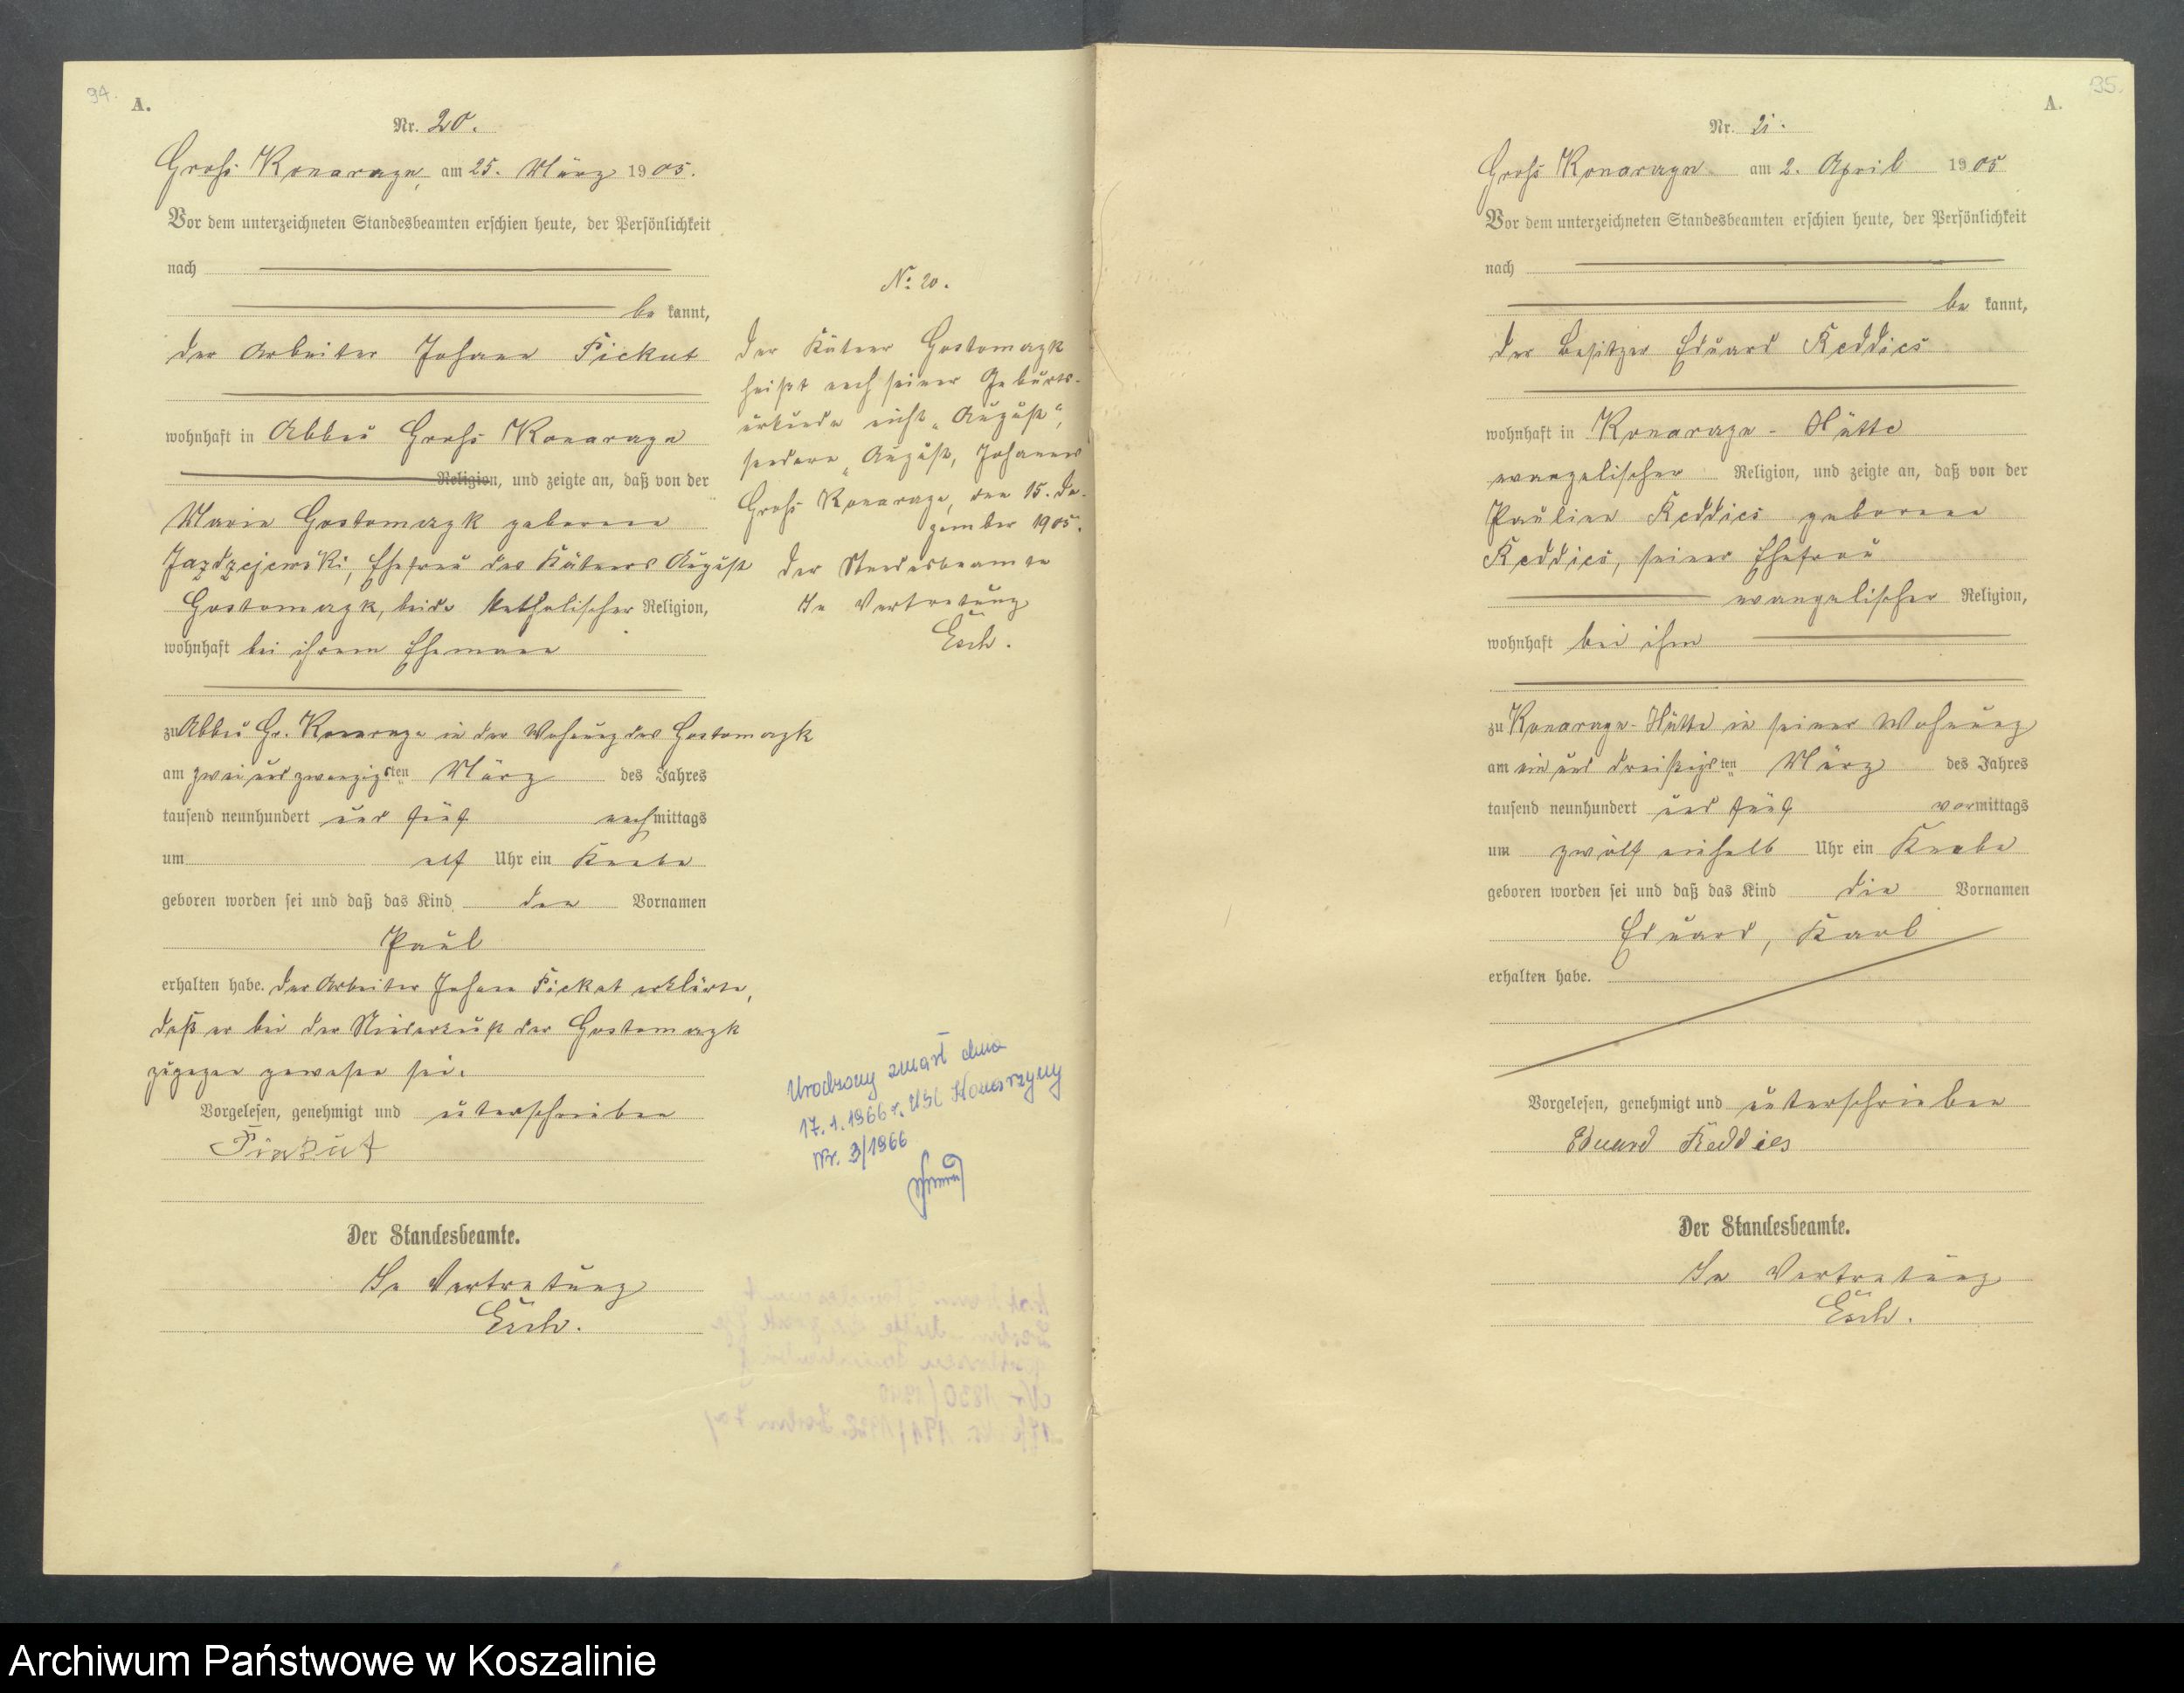 94.
A.
Nr. 20.
Groß Konarzyn, am 25. März 1905.
Vor dem unterzeichneten Standesbeamten erschien heute, der Persönlichkeit
nach
bekannt,
der Arbeiter Johann
wohnhaft in Abbau Groß Konarzyn
Religion, und zeigte an, daß von der
Maria Gostomczyk geborene
Jazdzejewski, Ehefrau des Kätners August
Gostomczyk, beide katholischer Religion,
wohnhaft bei ihrem Ehemann
zu Abbau Gr. Konarzyn in der Wohnung des Gostomczyk
am zwei und zwanzigsten März des Jahres
tausend neunhundert und fünf nachmittags
um elf Uhr ein Knabe
geboren worden sei und daß das Kind den Vornamen
Paul
erhalten habe. Der Arbeiter Johann erklärte,
daß er bei der Niederkunft der Gostomczyk
zugegen gewesen sei.
Vorgelesen, genehmigt und unterschrieben
Der Standesbeamte.
In Vertretung
Esch.
No. 20.
Der Kätner Gostomczyk
heißt nach seiner Geburts-
urkunde nicht „August“,
sondern „August, Johannes
Groß Konarzyn, den 15. De-
zember 1905.
Der Standesbeamte
In Vertretung
Esch.
Urodzony zmarł dnia
17.1.1966 r. USC Konarzyny
Nr. 3/1966
35.
A.
Nr. 21.
Groß Konarzyn am 2. April 1905
Vor dem unterzeichneten Standesbeamten erschien heute, der Persönlichkeit
nach
bekannt,
der Besitzer Eduard Reddies
wohnhaft in Konarzyn-Hütte
evangelischer Religion, und zeigte an, daß von der
Pauline Reddies geborene
Reddies, seiner Ehefrau
evangelischer Religion,
wohnhaft bei ihm
zu Konarzyn-Hütte in seiner Wohnung
am ein und dreißigsten März des Jahres
tausend neunhundert und fünf vormittags
um zwölf einhalb Uhr ein Knabe
geboren worden sei und daß das Kind die Vornamen
Eduard, Karl
erhalten habe.
Vorgelesen, genehmigt und unterschrieben
Eduard Reddies
Der Standesbeamte.
In Vertretung
Esch.
Archiwum Państwowe w Koszalinie